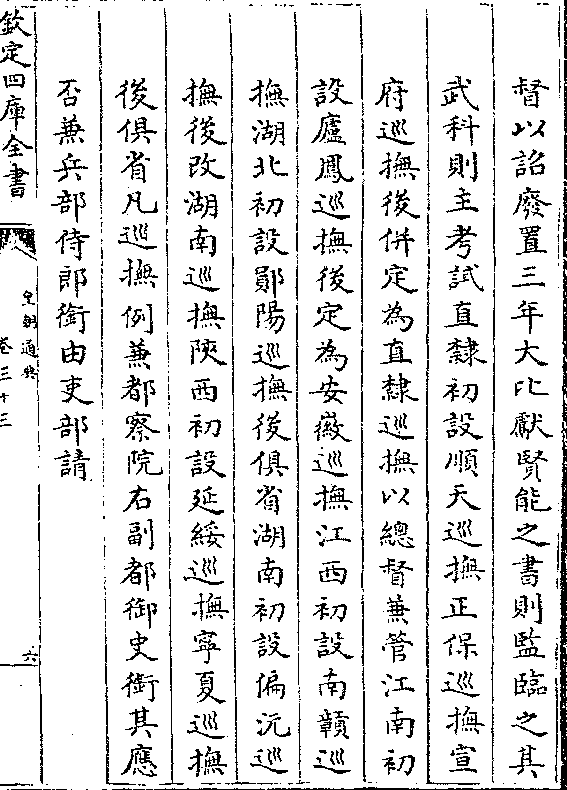 督以詔廢置三年大比獻賢能之書則監臨之其
武科則主考試直隸初設順天巡撫正保巡撫宣
府巡撫後併定為直隸巡撫以總督兼管江南初
設廬鳳巡撫後定為安徽巡撫江西初設南贛巡
撫湖北初設鄖陽巡撫後俱省湖南初設偏沅巡
撫後改湖南巡撫陝西初設延綏巡撫寧夏巡撫
後俱省凡巡撫例兼都察院右副都御史銜其應
否兼兵部侍郎銜由吏部請
欽定四庫全書
皇朝通典
卷三十三
六